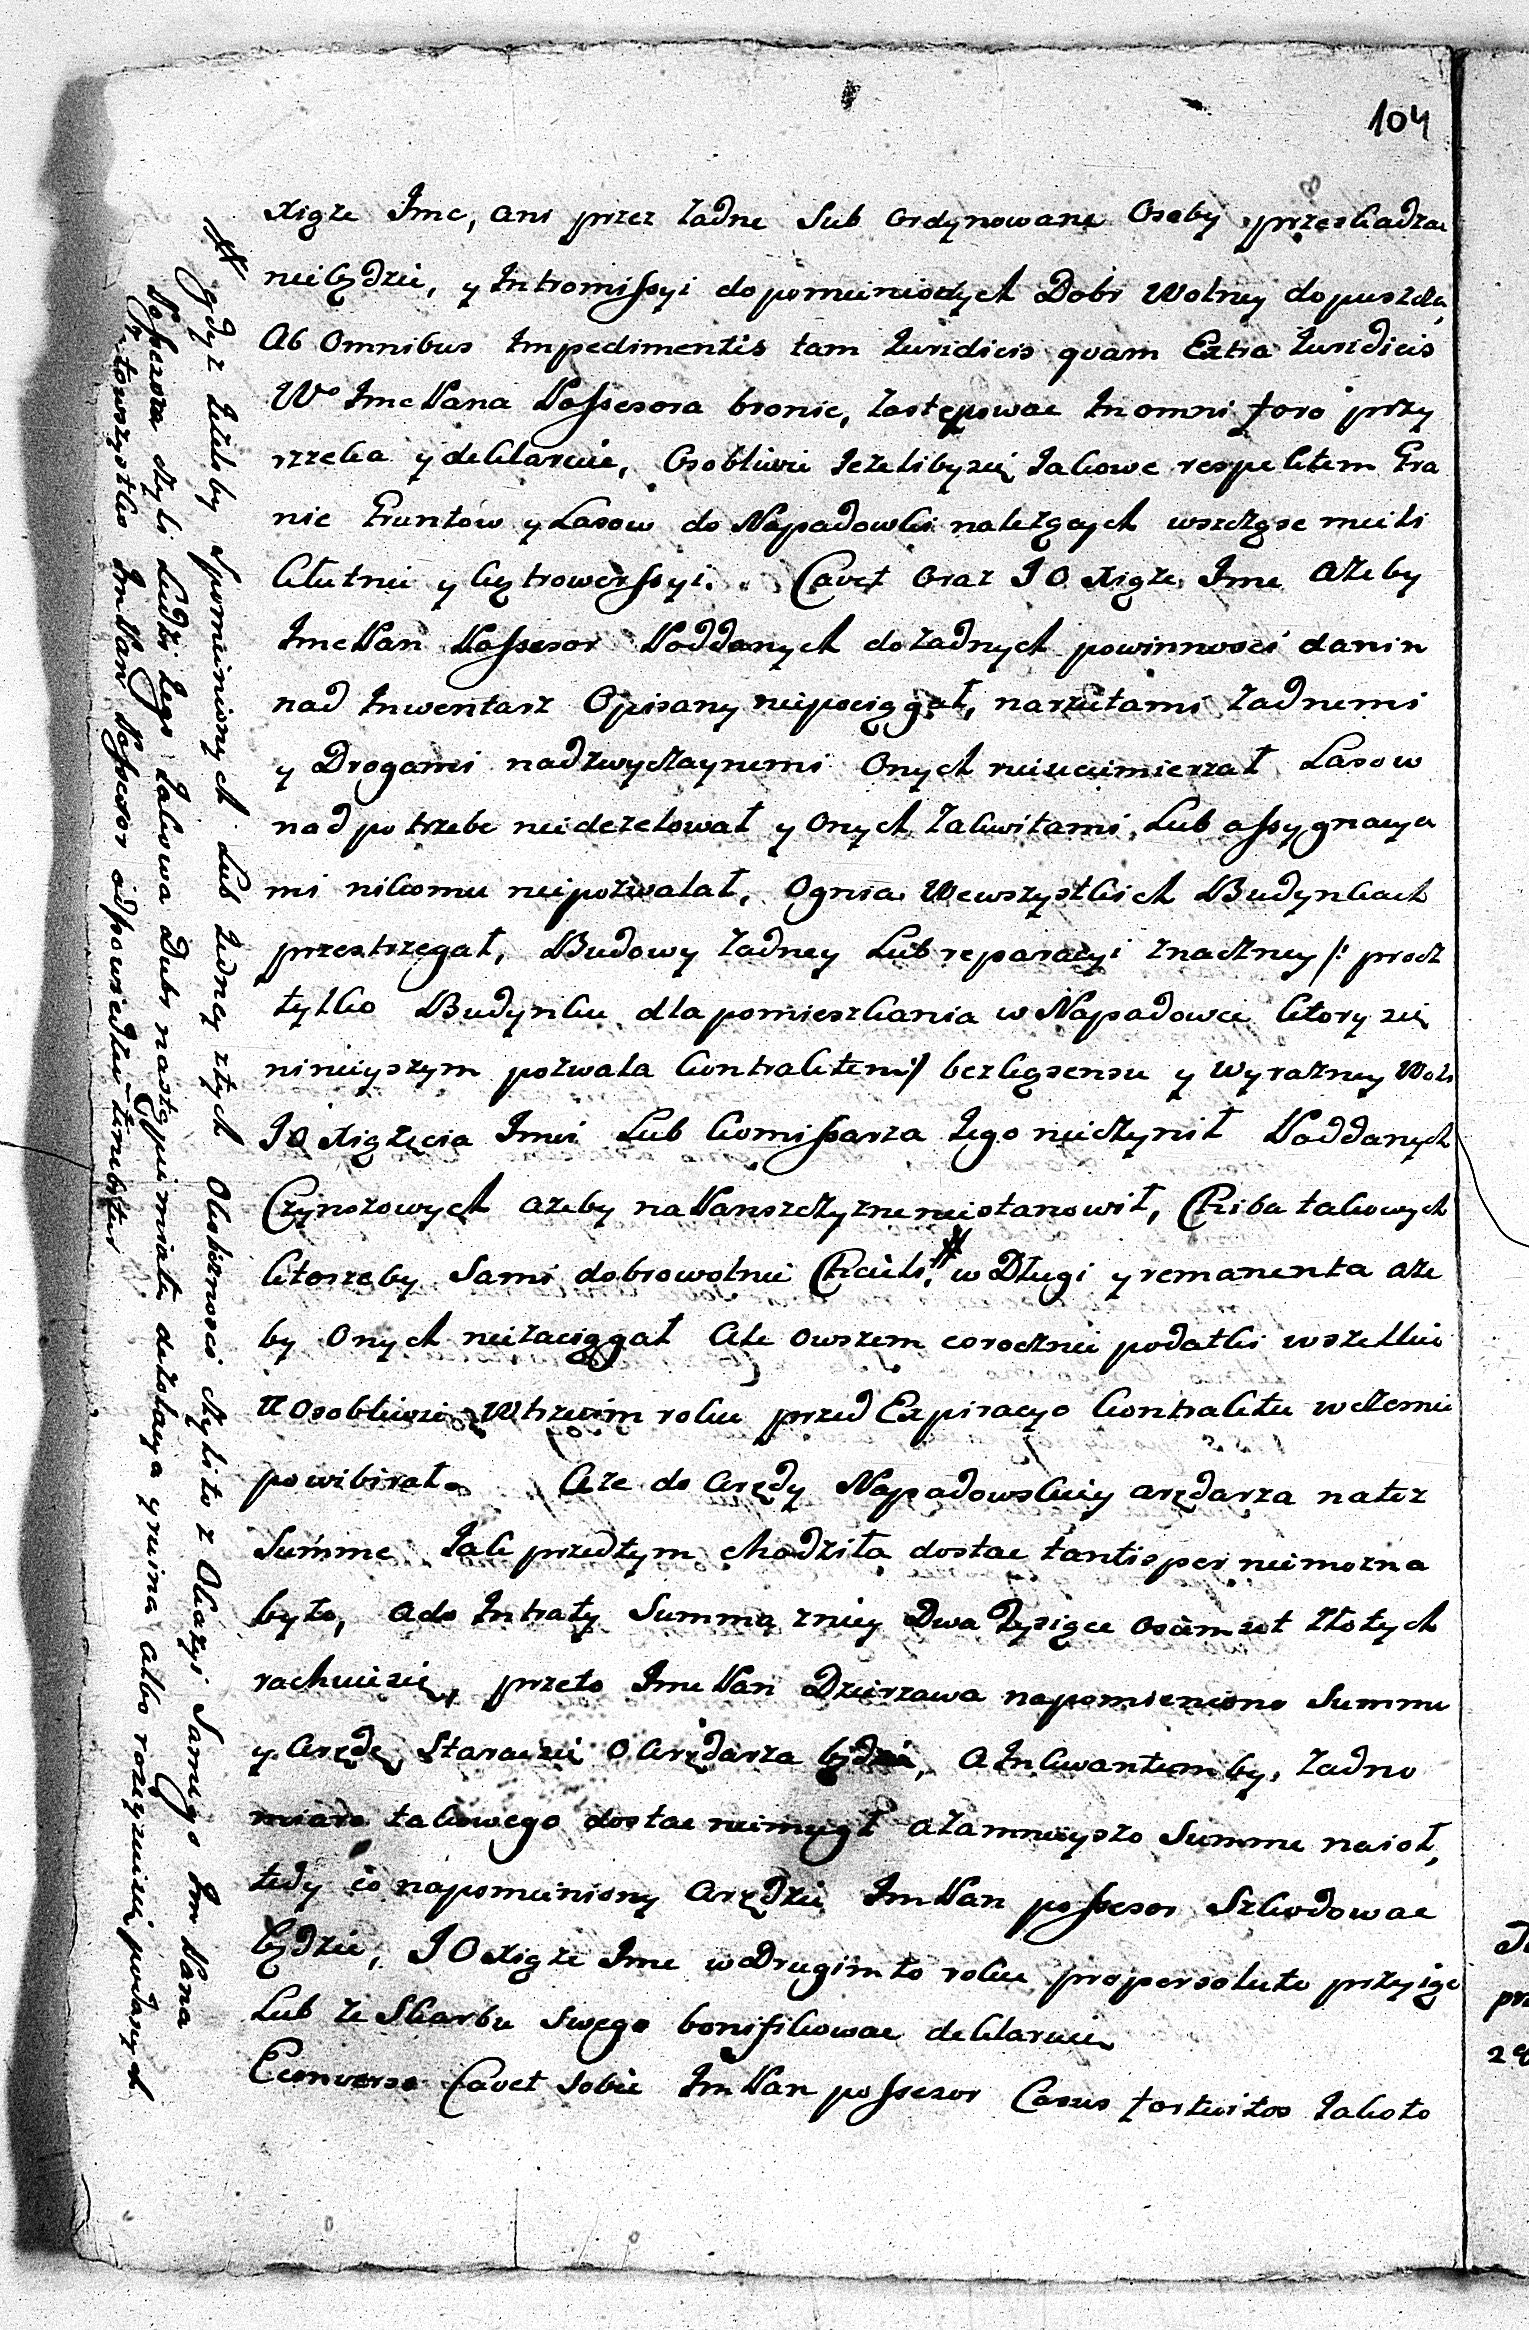 104
Xiąże Jmc, ani przez żadne Sub ordynowane Osoby przeszkadzac
niebędzie, y Intromissyi do pomienionych Dobr Wolney dopuszcza,
Ab Omnibus Impedimentis tam Iuridicis quam Extra Iuridicis
Wo Jmc Pana Possesora bronic, zastępowac In omni foro przy
rzeka y deklaruie, Osobliwie Jeżeliby się Jakowe respektem Gra
nic Gruntow y Lasow do Napadowki należących wszcząsc mieli
kłutnie y kątrowerssyi. Cavet oraz J O Xiąże Jmc ażeby
Jmc Pan Possesor Poddanych do żadnych powinnosci danin
nad Inwentarz Opisany niepociągał, narzutami żadnemi
y Drogami nadzwyczaynemi Onych nieuciemierzał Lasow
nad potrzebe niedezelował y Onych zakwitami Lub assygnacya
mi nikomu niepozwalał, Ognia Wewszystkich Budynkach
przestrzegał, Budowy żadney Lub reparacyi znaczney /: procz
tylko Budynku dla pomieszkania w Napadowce ktory się
ninieyszym pozwala kontraktem :/ bez kąsensu y wyrazney Woli
J O Xiążęcia Jmci Lub komissarza Jego nieczynił Poddanych
Czynszowych ażeby na Panszczyzne niestanowił, Chiba takowych
ktorzeby Sami dobrowolnie Chcieli, # w Długi y remanenta aże
by Onych niezaciągał Ale owszem corocznie podatki wszelkie
a Osobliwie Wtrzecim roku przed Expiracyo kontraktu wczesnie
powibirał. Aże do Arędy Napadowskiey arędarza natez
Summe Jak przedtym chodziła dostac tantisper niemozna
było, a do Intraty Summa zniey Dwa Tysiące osiemset Złotych
rachuie się, przeto Jmc Pan Dzierzawa napomieniono Summe
y Arędę, Starac się o Arędarza będzie, a In quantum by, żadno
miaro takowego dostac niemugł a zamnieyszo Summe naioł,
tedy co napomieniony Arędzie Jm Pan possesor Szkodowac
będzie, J O Xiąże Jmc wDrugim to roku pro persoluto przyiąc
Lub ze Skarbu Swego bonifikowac deklaruie
Econverso Cavet sobie Jm Pan possesor Casus fortuitos Jakoto
# gdyż Jeżeliby Spomienionych Lub Jedney ztych Okolicznosci czyli to z Okazyi Samego Jm Pana
Possesora czyli Ludzi Jego Jakowa Dubr nastąpi miała dezolacya y ruina albo rozeyscie się poddanych
to wszystko Jm Pan Possesor odpowiedziec tenebitur